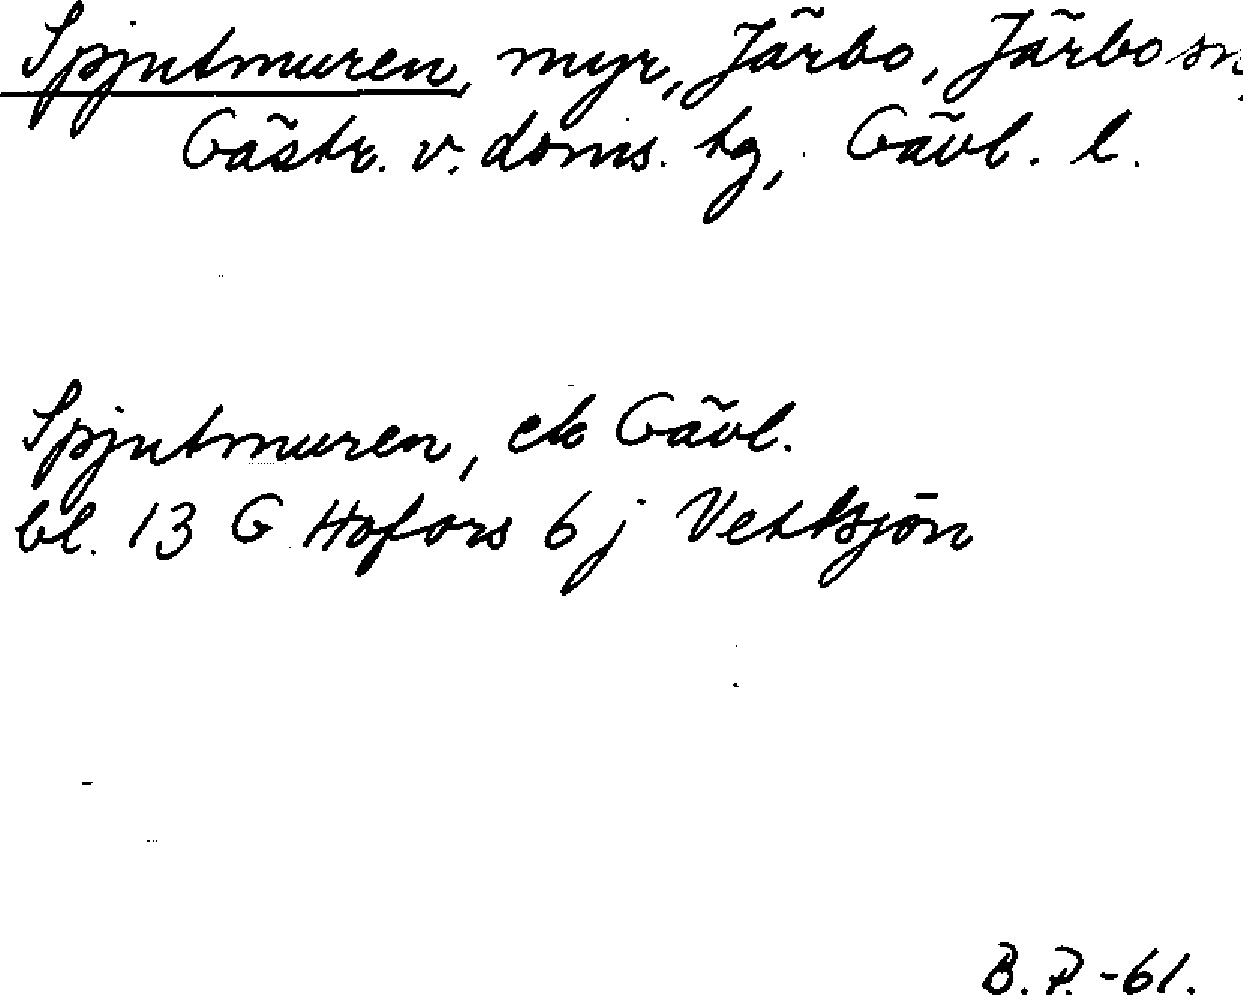 Spjutmuren, myr, Järbo, Järbo sn,
Gästr. v. doms. tg, Gävl. l.
Spjutmuren, ek Gävl.
bl. 13 G Hofors 6 j Vettsjön
B. P. -61.